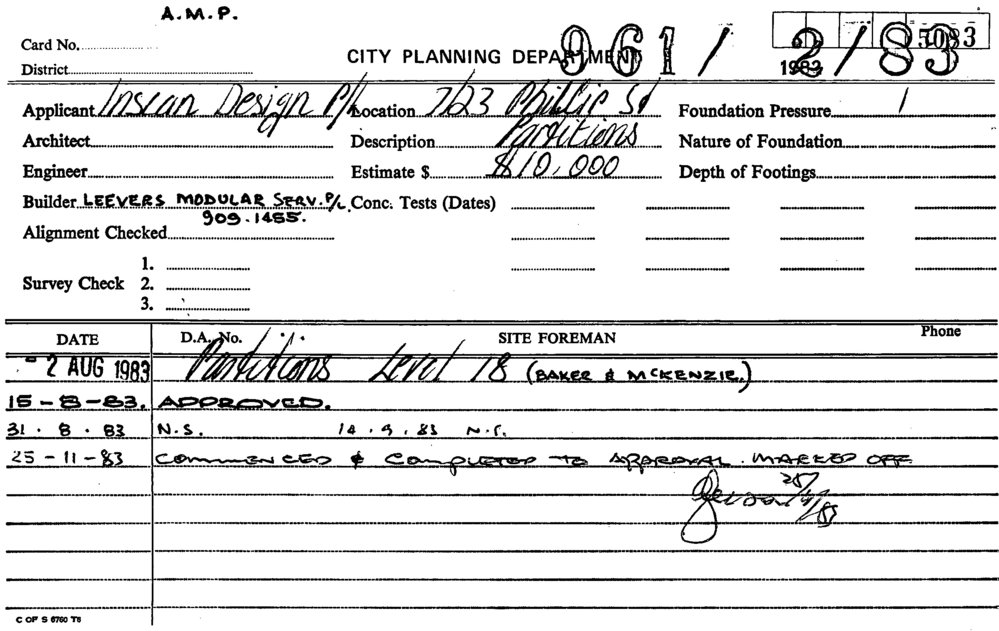 A.M.P.
Card No.
District
CITY PLANNING DEPARTMENT
961/2/83
1983
15083
Applicant Inscan Design P/L Location 7/23 Phillip St Foundation Pressure
Architect Description Partitions Nature of Foundation
Engineer Estimate $ $10,000 Depth of Footings
Builder LEEVERS MODULAR SERV. P/L. Conc. Tests (Dates)
909.1455.
Alignment Checked
1.
Survey Check 2.
3.
DATE D.A. No. SITE FOREMAN Phone
-2 AUG 1983 Partitions Level 18 (BAKER & MCKENZIE.)
15-8-83. APPROVED.
31.8.83 N.S. 14.9.83 N.S.
25-11-83 COMMENCED & COMPLETED TO APPROVAL. MARKED OFF
25/11/83
C OF S 6760 T6